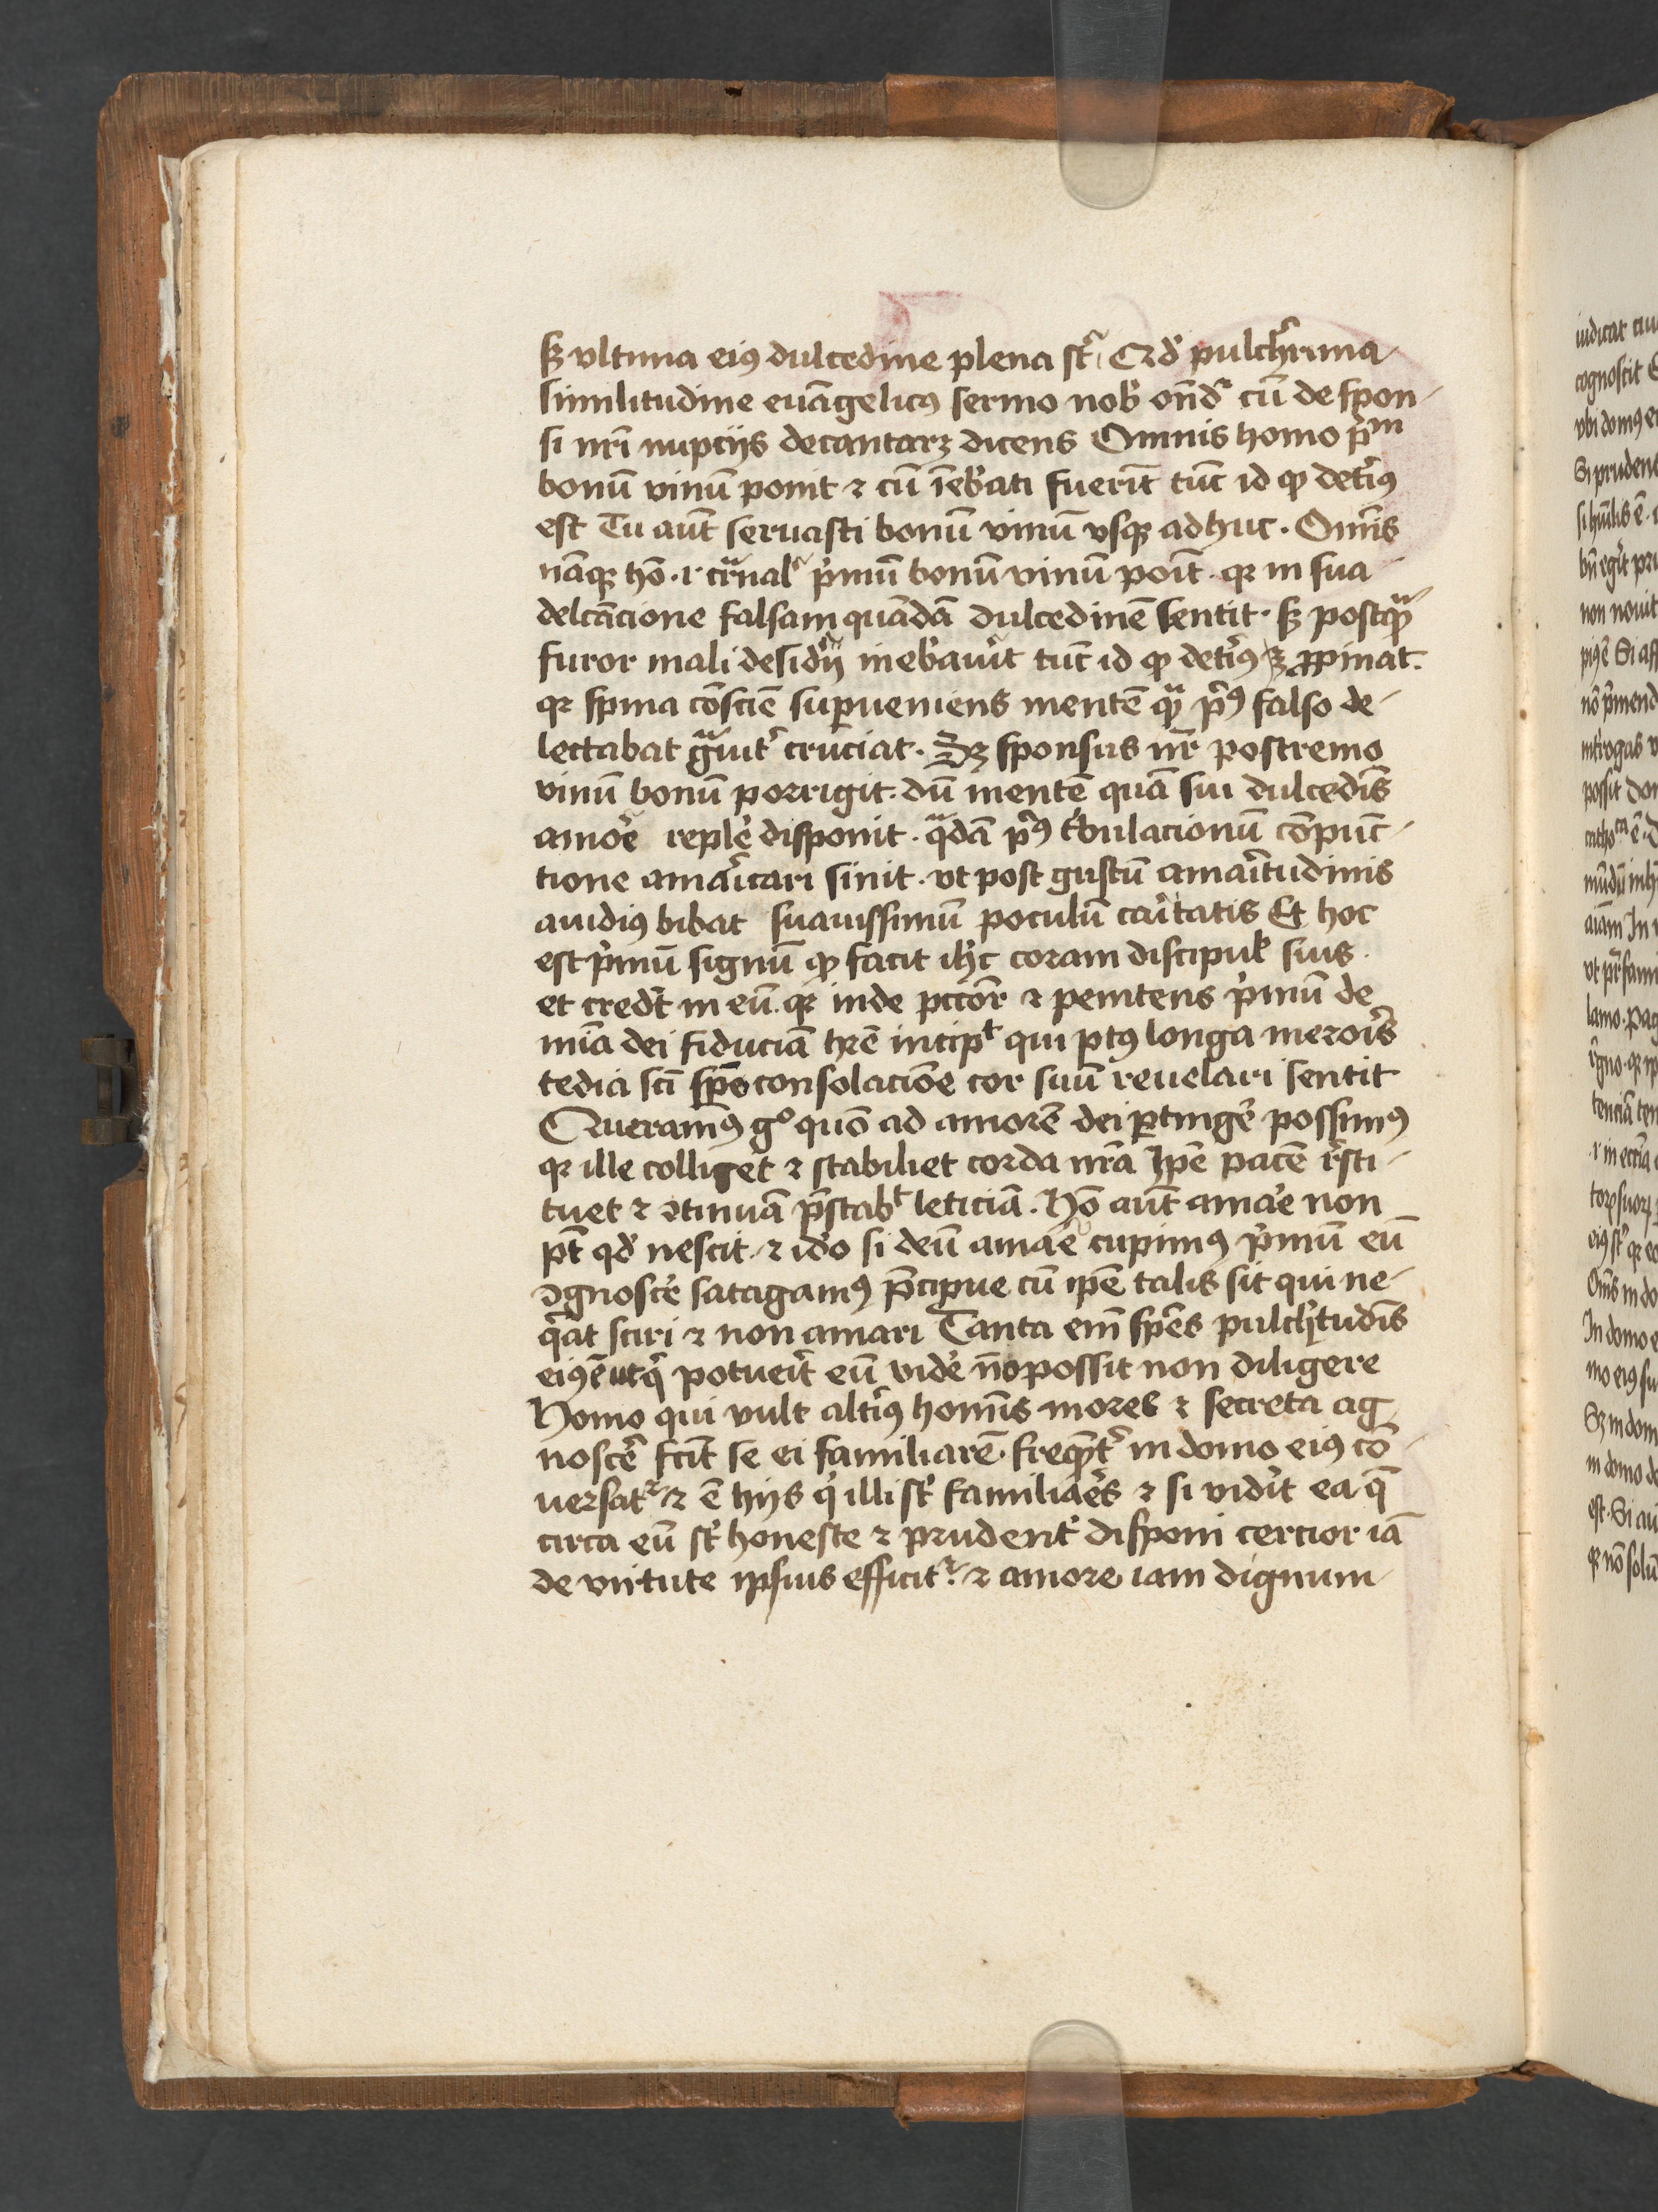 sꝫ vltima eiꝯ dulcedine plena st᷑ Qd̛ pulch̛rima
similitudine eua̅gelicꝯ sermo nob̛ on̅d᷑ cu̅ de spon
si nr̅i nupcijs decantarꝫ dicens Omnis homo p̅m
bonu̅ vinu̅ ponit ⁊ cu̅ i̅eb̛ati fuerit̅ tu̅c id qꝫ det̛iꝯ
est Tu aut̅ seruasti bonu̅ vinu̅ vsqꝫ adhuc . Om̅is
na̅qꝫ ho̅ .i. carnal̛ p̛mu̅ bonu̅ vinu̅ poit̅ . qꝛ in sua
delc̅acione falsam qua̅da̅ dulcedine̅ sentit . sꝫ postqꝫ
furor mali desid̛ij ineb̛auit̛ tu̅c id qꝫ det̛iꝯ ꝓpinat .
qꝛ spina co̅scie̅ supueniens mente̅ qua̅ p̛ꝯ falso de
lectabat g̅uit̛ cruciat . Sꝫ sponsus nr̅ postremo
vinu̅ bonu̅ porrigit . du̅ mente̅ qua̅ sui dulcedis̅
amor̛e reple̛ disponit . qda̅ p̛ꝯ t̛bulacionu̅ co̅punc
tione amar̛icari sinit . vt post gustu̅ amait̛udinis
auidiꝯ bibat suauissimu̅ poculu̅ cait̛atis Et hoc
est p̛mu̅ signu̅ qꝫ facit ih̅c coram discipul̛ suis .
et cred̛t in eu̅ . qꝛ inde pcc̅or ⁊ penitens p̛mu̅ de
mi̅a dei fiducia̅ hr̅e incip̛t qui pꝰtꝯ longa merois̛
tedia sci̅ sp̅o consolacio̅e cor suu̅ reuelari sentit
Queramꝯ gͦ quo̅ ad amore̅ dei ptinge̛ possimꝯ
qꝛ ille colliget ⁊ stabiliet corda nr̅a ip̅e pace̅ r̛sti
tuet ⁊ ꝯtinua̅ p̅stab̛t leticia̅ . Ho̅ aut̅ amae̛ non
pt̅ qd̛ nescit ⁊ id̛o si deu̅ amae̛ cupimꝯ p̛mu̅ eu̅
ꝯgnosce̛ satagamꝯ p̅cipue cu̅ ip̅e talis sit qui ne
q̅at sciri ⁊ non amari Tanta em̅ sp̅es pulch̛tudis̅
eiꝯ e̅ ut q̛ potueit̛ eu̅ vide̛ no̅ possit non diligere
Homo qui vult alt̛iꝯ homis̅ mores ⁊ secreta ag
nosce̛r fcit̅ se ei familiare̅ . freq̅nt̛ in domo eiꝯ co̅
uersat᷑ ⁊ e̅ hijs q̛ illi st̛ familiae̛s ⁊ si vid̛it ea q̅
circa eu̅ st̛ honeste ⁊ prudent̛ disponi cercior ia̅
de virtute ipsius efficit᷑ ⁊ amore iam dignum